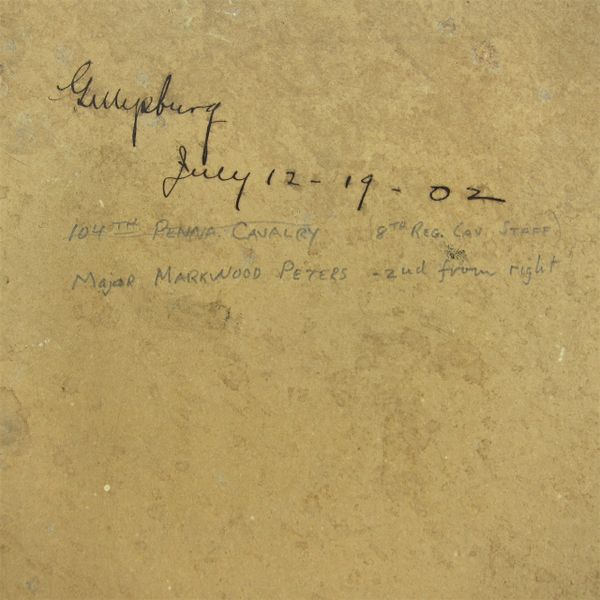 Gettysburg
July 12 - 19 - 02
104TH PENNA. CAVALRY (8TH REG. CAV. STAFF)
Major MARKWOOD PETERS - 2nd from right